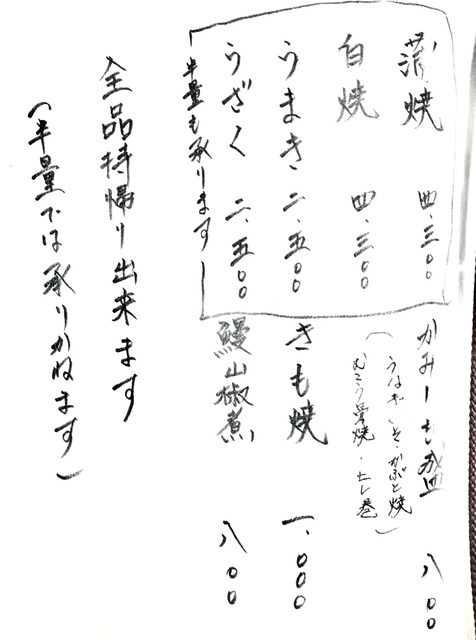 蒲焼 四.三〇〇
白焼 四.三〇〇
うまき 二.五〇〇
うざく 二.五〇〇
半量も承ります
盛 八〇〇
焼
骨焼・ヒレ巻
きも焼 一.〇〇〇
鰻山椒煮 八〇〇
全品持帰り出来ます
(半量では承りかねます)